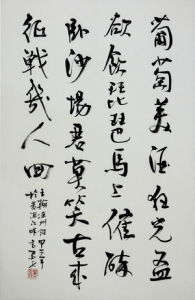 葡萄美酒夜光盃
欲飲琵琶馬上催醉
卧沙場君莫笑古來
征戰幾人回
王翰涼州詞